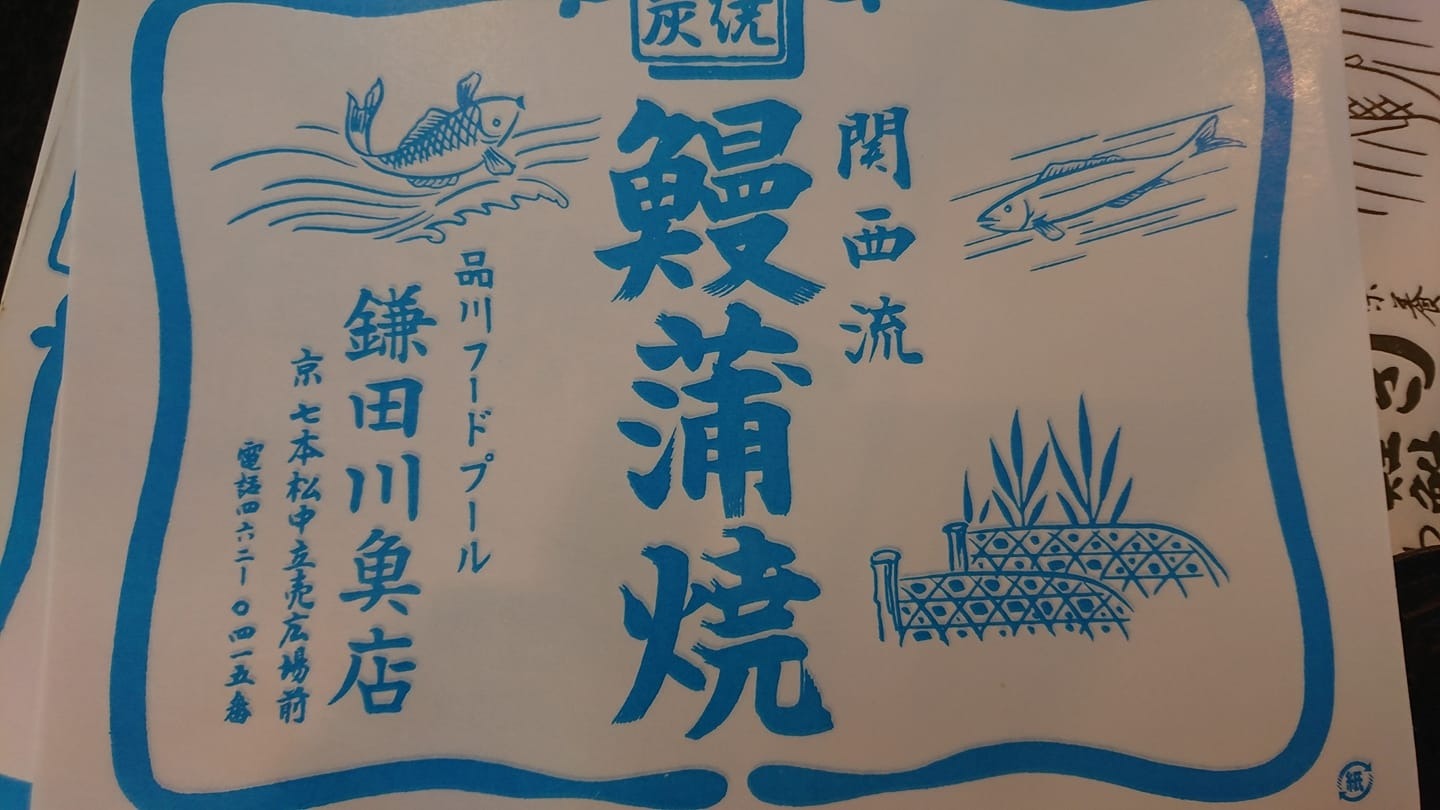 炭焼
関西流
鰻蒲焼
品川フードプール
鎌田川魚店
京 七本松中立売広場前
電話四六二-〇四一五番
紙